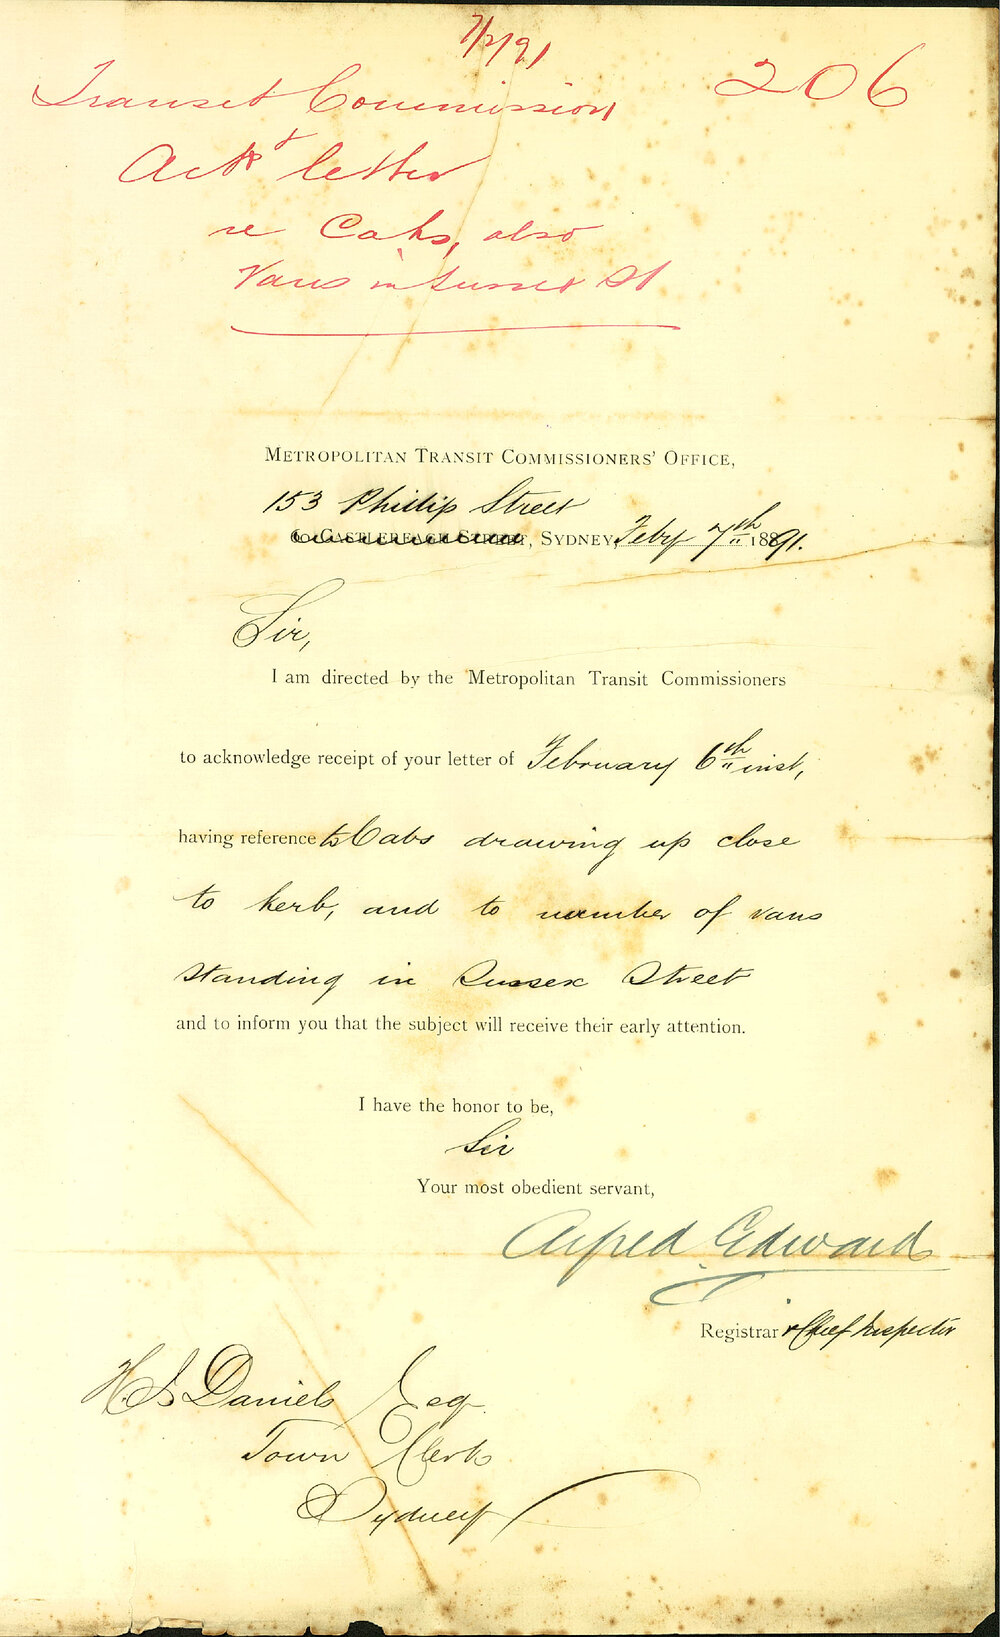 7/2/91
206
Transit Commission
Ackg letter
re Cabs, also
Vans in Sussex St
METROPOLITAN TRANSIT COMMISSIONERS' OFFICE,
153 Phillip Street
CASTLEREAGH STREET, SYDNEY, Feby 7th 1891.
Sir,
I am directed by the Metropolitan Transit Commissioners
to acknowledge receipt of your letter of February 6th inst,
having reference to Cabs drawing up close
to kerb, and to number of vans
standing in Sussex Street
and to inform you that the subject will receive their early attention.
I have the honor to be,
Sir
Your most obedient servant,
Alfred Edward
Registrar & Chief Inspector
H. J. Daniels Esq.
Town Clerk
Sydney